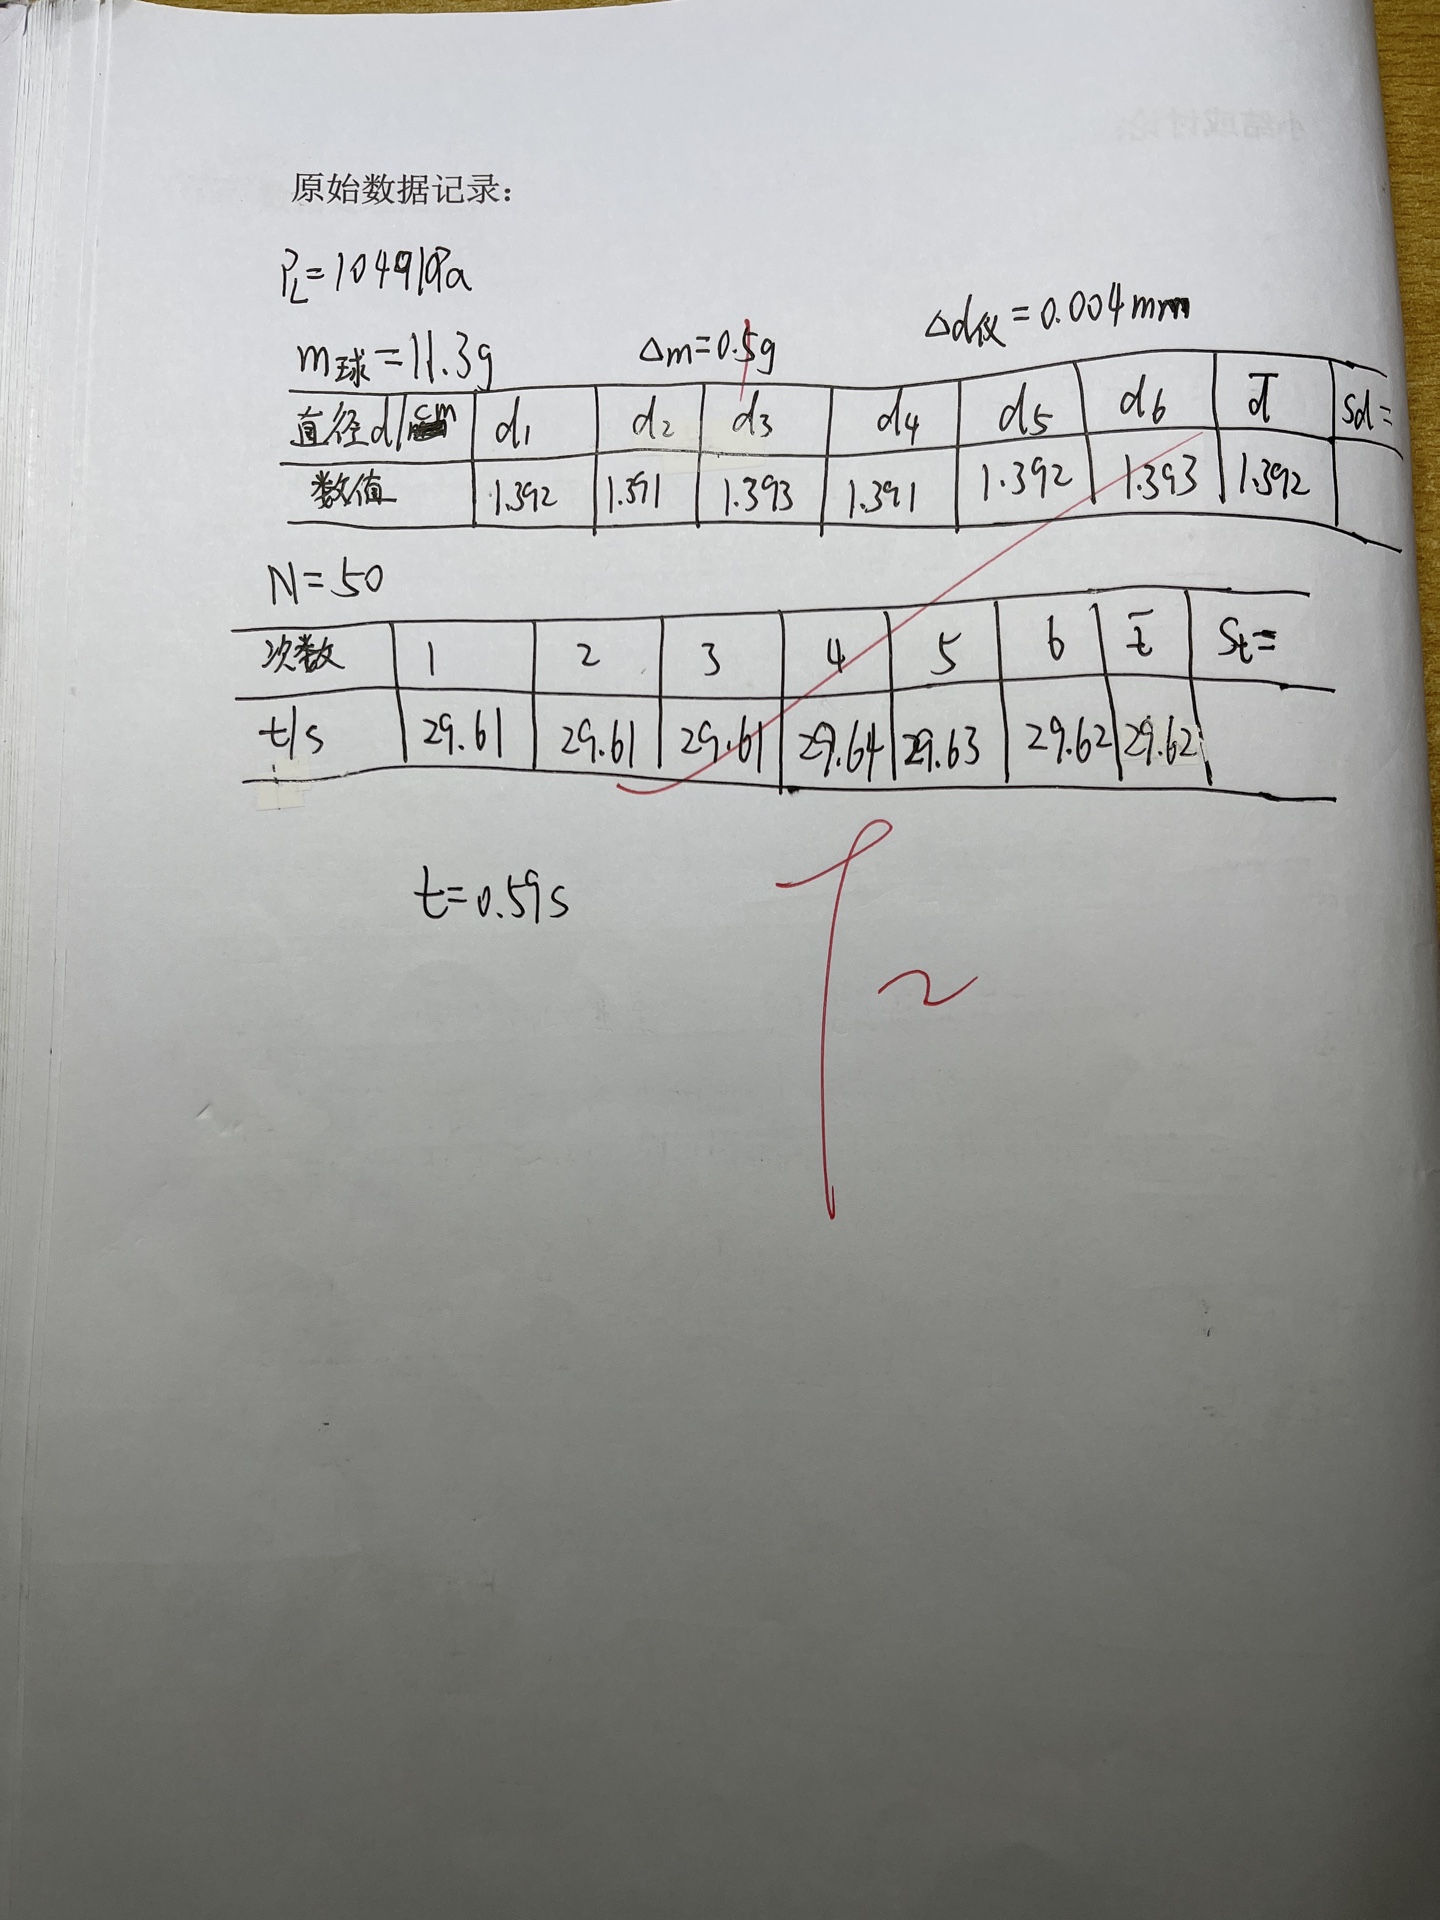 原始数据记录：
P_L=104910Pa
m球=11.3g △m=0.5g △d仪=0.004mm
直径d/cm d₁ d₂ d₃ d₄ d₅ d₆ d̄ Sd=
数值 1.392 1.391 1.393 1.391 1.392 1.393 1.392
N=50
次数 1 2 3 4 5 6 t̄ St=
t/s 29.61 29.61 29.61 29.64 29.63 29.62 29.62
t=0.59s